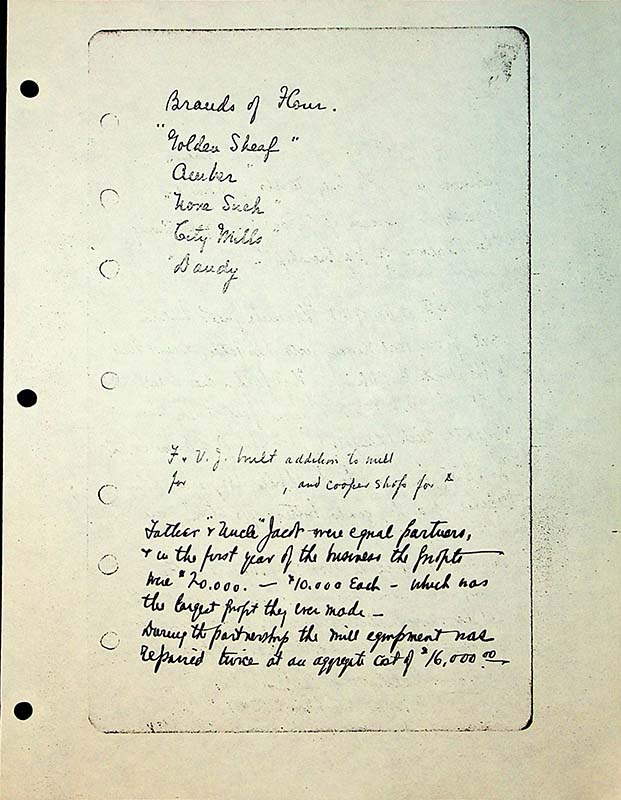 Brands of Flour.
"Golden Sheaf"
"Amber"
"None Such"
"City Mills"
"Dandy"
F & U. J. built addition to mill
for , and cooper shops for $
Father & "Uncle" Jacob were equal partners,
& in the first year of the business the profits
were $20.000. — $10.000 Each – which was
the largest profit they ever made –
During the partnership the mill equipment was
repaired twice at an aggregate cost of $16,000.00